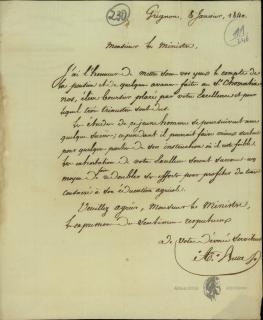 230
Grignon, 8 Janvier, 1840.
Monsieur le Ministre,
J'ai l'honneur de mettre sous vos yeux le compte de
la pension et de quelques avances faites au Sr
nos, élève boursier placé par votre Excellence et pour
lequel trois trimestres sont dus.
Les études de ce jeune homme se poursuivent avec
quelque succès; cependant il pourrait faire mieux surtout
pour quelques parties de son instruction où il est faible.
Les exhortations de votre Excellence seront surement un
moyen de redoubler ses efforts pour profiter du tems
consacré à son éducation agricole.
Veuillez agréer, Monsieur le Ministre,
les expressions de sentimens respectueux
de votre dévoué serviteur